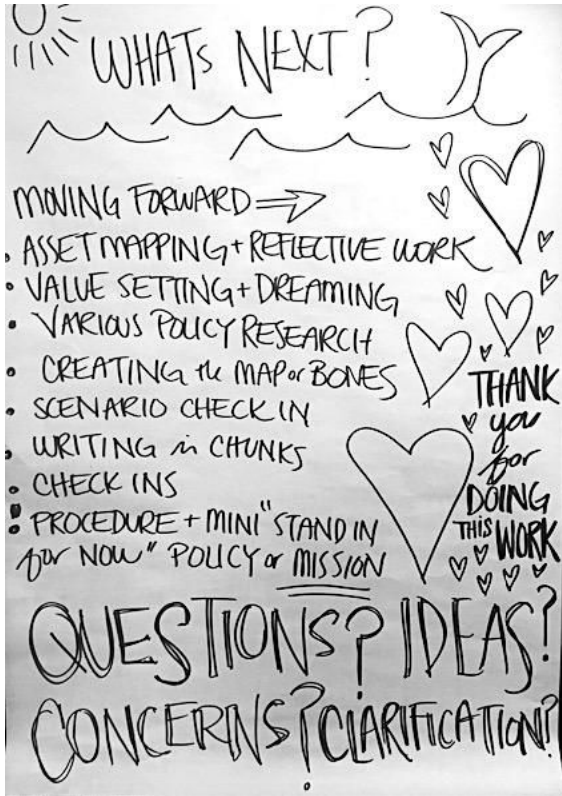 WHATs NEXT?
MOVING FORWARD ⇒
• ASSET MAPPING + REFLECTIVE WORK
• VALUE SETTING + DREAMING
• VARIOUS POLICY RESEARCH
• CREATING the MAP or BONES
• SCENARIO CHECK IN
• WRITING in CHUNKS
• CHECK INS
• PROCEDURE + MINI "STAND IN
for NOW" POLICY or MISSION
THANK
you
for
DOING
THIS WORK
QUESTIONS? IDEAS?
CONCERNS? CLARIFICATION?